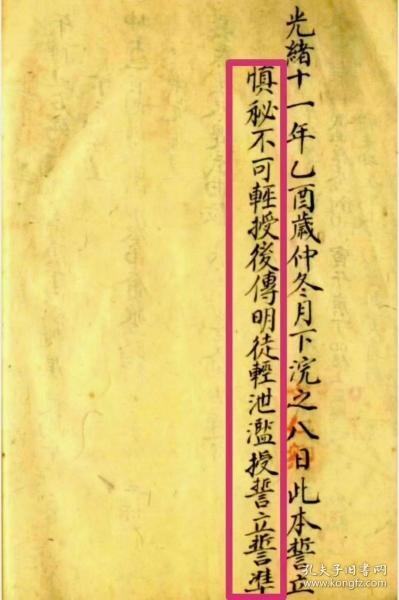 光緒十一年乙酉歲仲冬月下浣之八日此本誓立
慎秘不可輕授後傳明徒輕泄濫授誓立誓準
孔夫子旧书网
www.kongfz.com